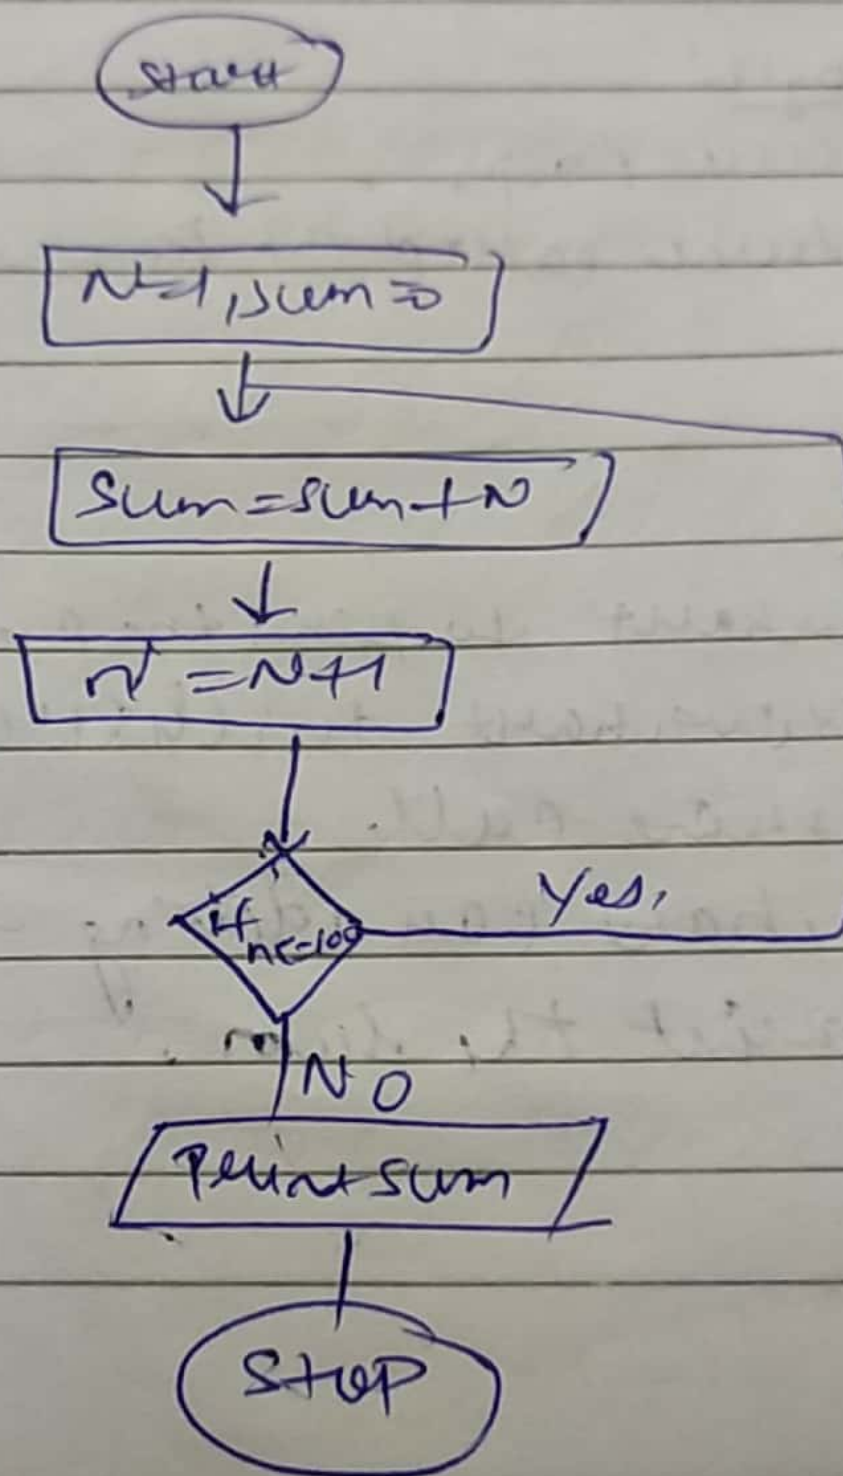 Start
N=1, sum=0
Sum=sum+N
n=N+1
If
n<=100
Yes,
NO
Print sum
Stop